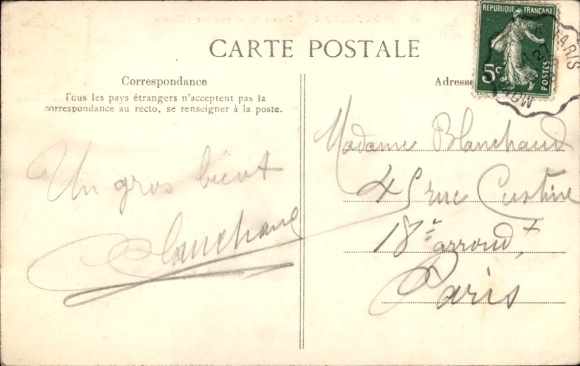 CARTE POSTALE
Correspondance
Tous les pays étrangers n'acceptent pas la
correspondance au recto, se renseigner à la poste.
Un gros bécot
Blanchard
Adresse
REPUBLIQUE FRANÇAISE
5c
POSTES
PARIS
Madame Blanchard
45 rue Custine
18e arrondt
Paris